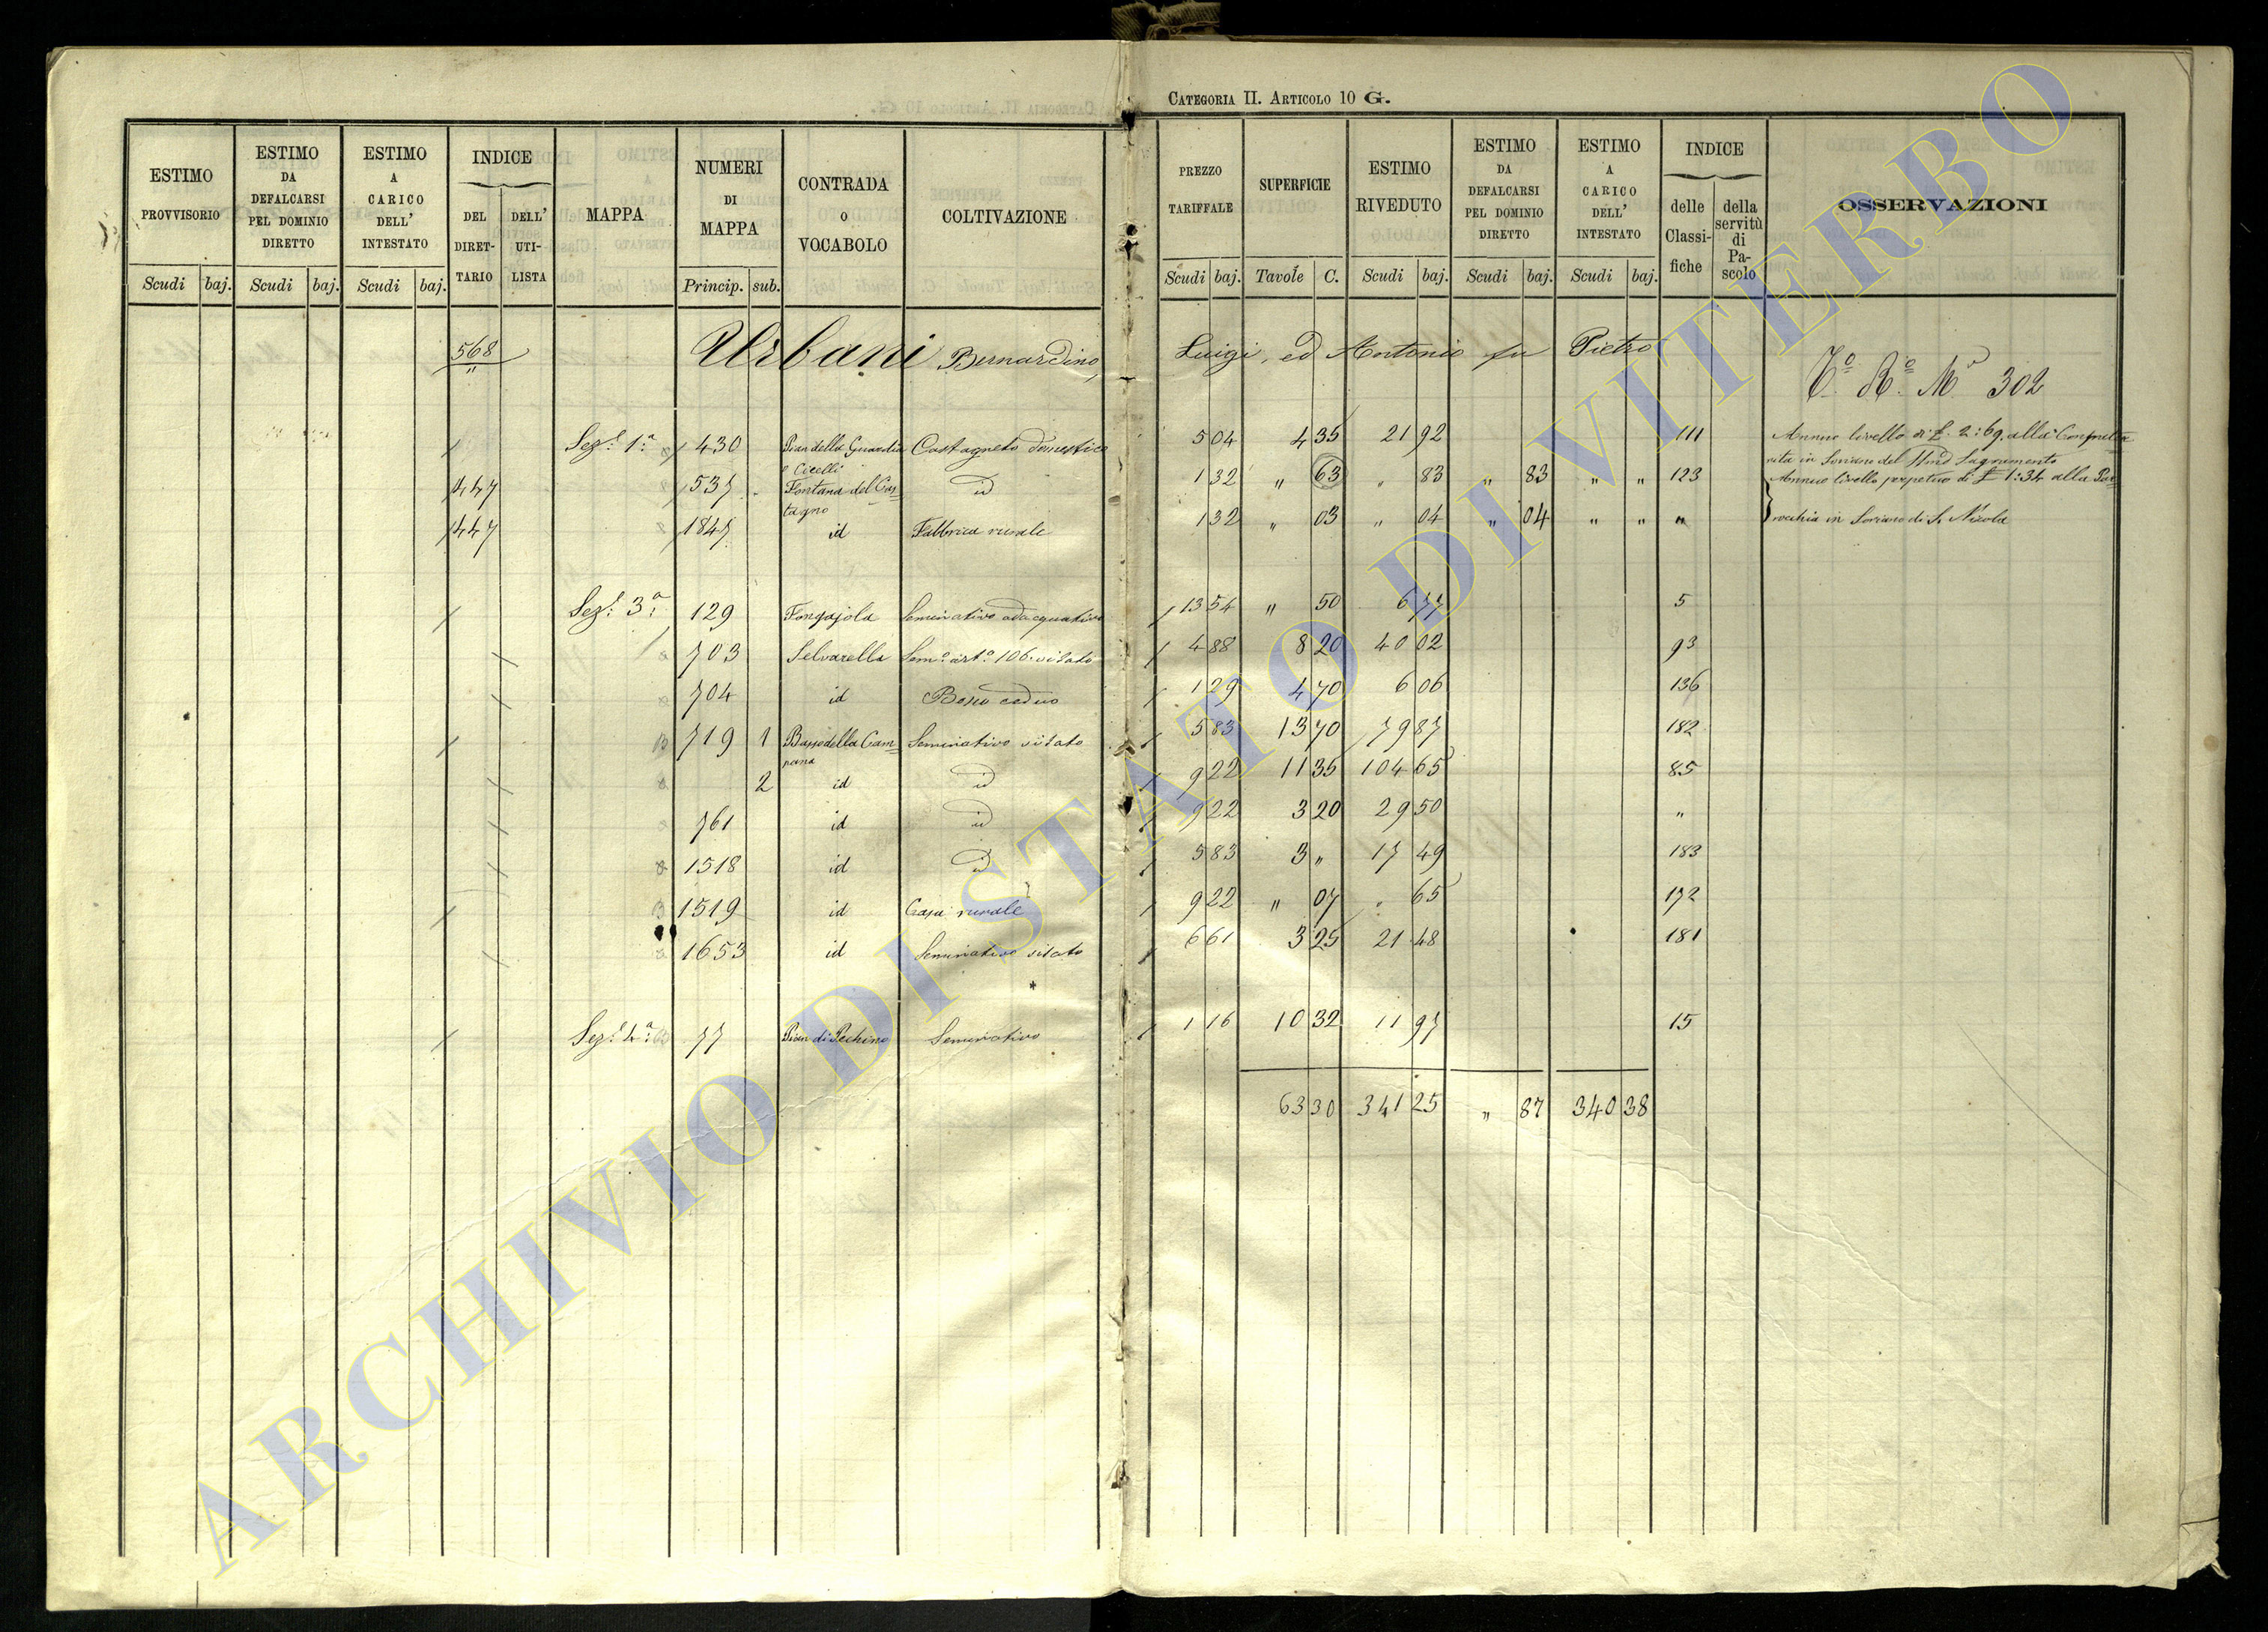 CATEGORIA II. ARTICOLO 10 G.
ESTIMO PROVVISORIO
Scudi baj.
ESTIMO DA DEFALCARSI PEL DOMINIO DIRETTO
Scudi baj.
ESTIMO A CARICO DELL' INTESTATO
Scudi baj.
INDICE
DEL DIRET-TARIO
DELL' UTI-LISTA
MAPPA
NUMERI DI MAPPA
Princip. sub.
CONTRADA O VOCABOLO
COLTIVAZIONE
PREZZO TARIFFALE
Scudi baj.
SUPERFICIE
Tavole C.
ESTIMO RIVEDUTO
Scudi baj.
ESTIMO DA DEFALCARSI PEL DOMINIO DIRETTO
Scudi baj.
ESTIMO A CARICO DELL' INTESTATO
Scudi baj.
INDICE
delle Classi-fiche
della servitù di Pa-scolo
OSSERVAZIONI
568 Urbani Bernardino, Luigi, ed Antonio fu Pietro
302
Sez.e 1.a 430 Pian della Guardia Castagneto domestico 5 04 4 35 21 92 111 Annuo livello di £. 2:69. alla Confrater
e Cicelli
nita in Soriano del SSmo Sagramento
447 537 Fontana del Cas= id 1 32 " 63 " 83 " 83 " " 123 Annuo livello perpetuo di £ 1:34 alla Par=
tagno
447 1847 id Fabbrica rurale 1 32 " 03 " 04 " 04 " " " rochia in Soriano di S. Nicola
Sez.e 3.a 129 Fongajola Seminativo adacquativo 13 54 " 50 6 77 5
703 Selvarella Sem.o art.o 106. vitato 4 88 8 20 40 02 93
704 id Bosco ceduo 1 29 4 70 6 06 136
719 1 Basse della Cam= Seminativo vitato 5 83 13 70 79 87 182
pana
2 id id 9 22 11 35 104 65 85
761 id id 9 22 3 20 29 50 "
1518 id id 5 83 3 " 17 49 183
1519 id Casa rurale 9 22 " 07 " 65 172
1653 id Seminativo vitato 6 61 3 25 21 48 181
Sez.e 4.a 77 Pian di Pechino Seminativo 1 16 10 32 11 97 15
63 30 341 25 " 87 340 38
ARCHIVIO DI STATO DI VITERBO